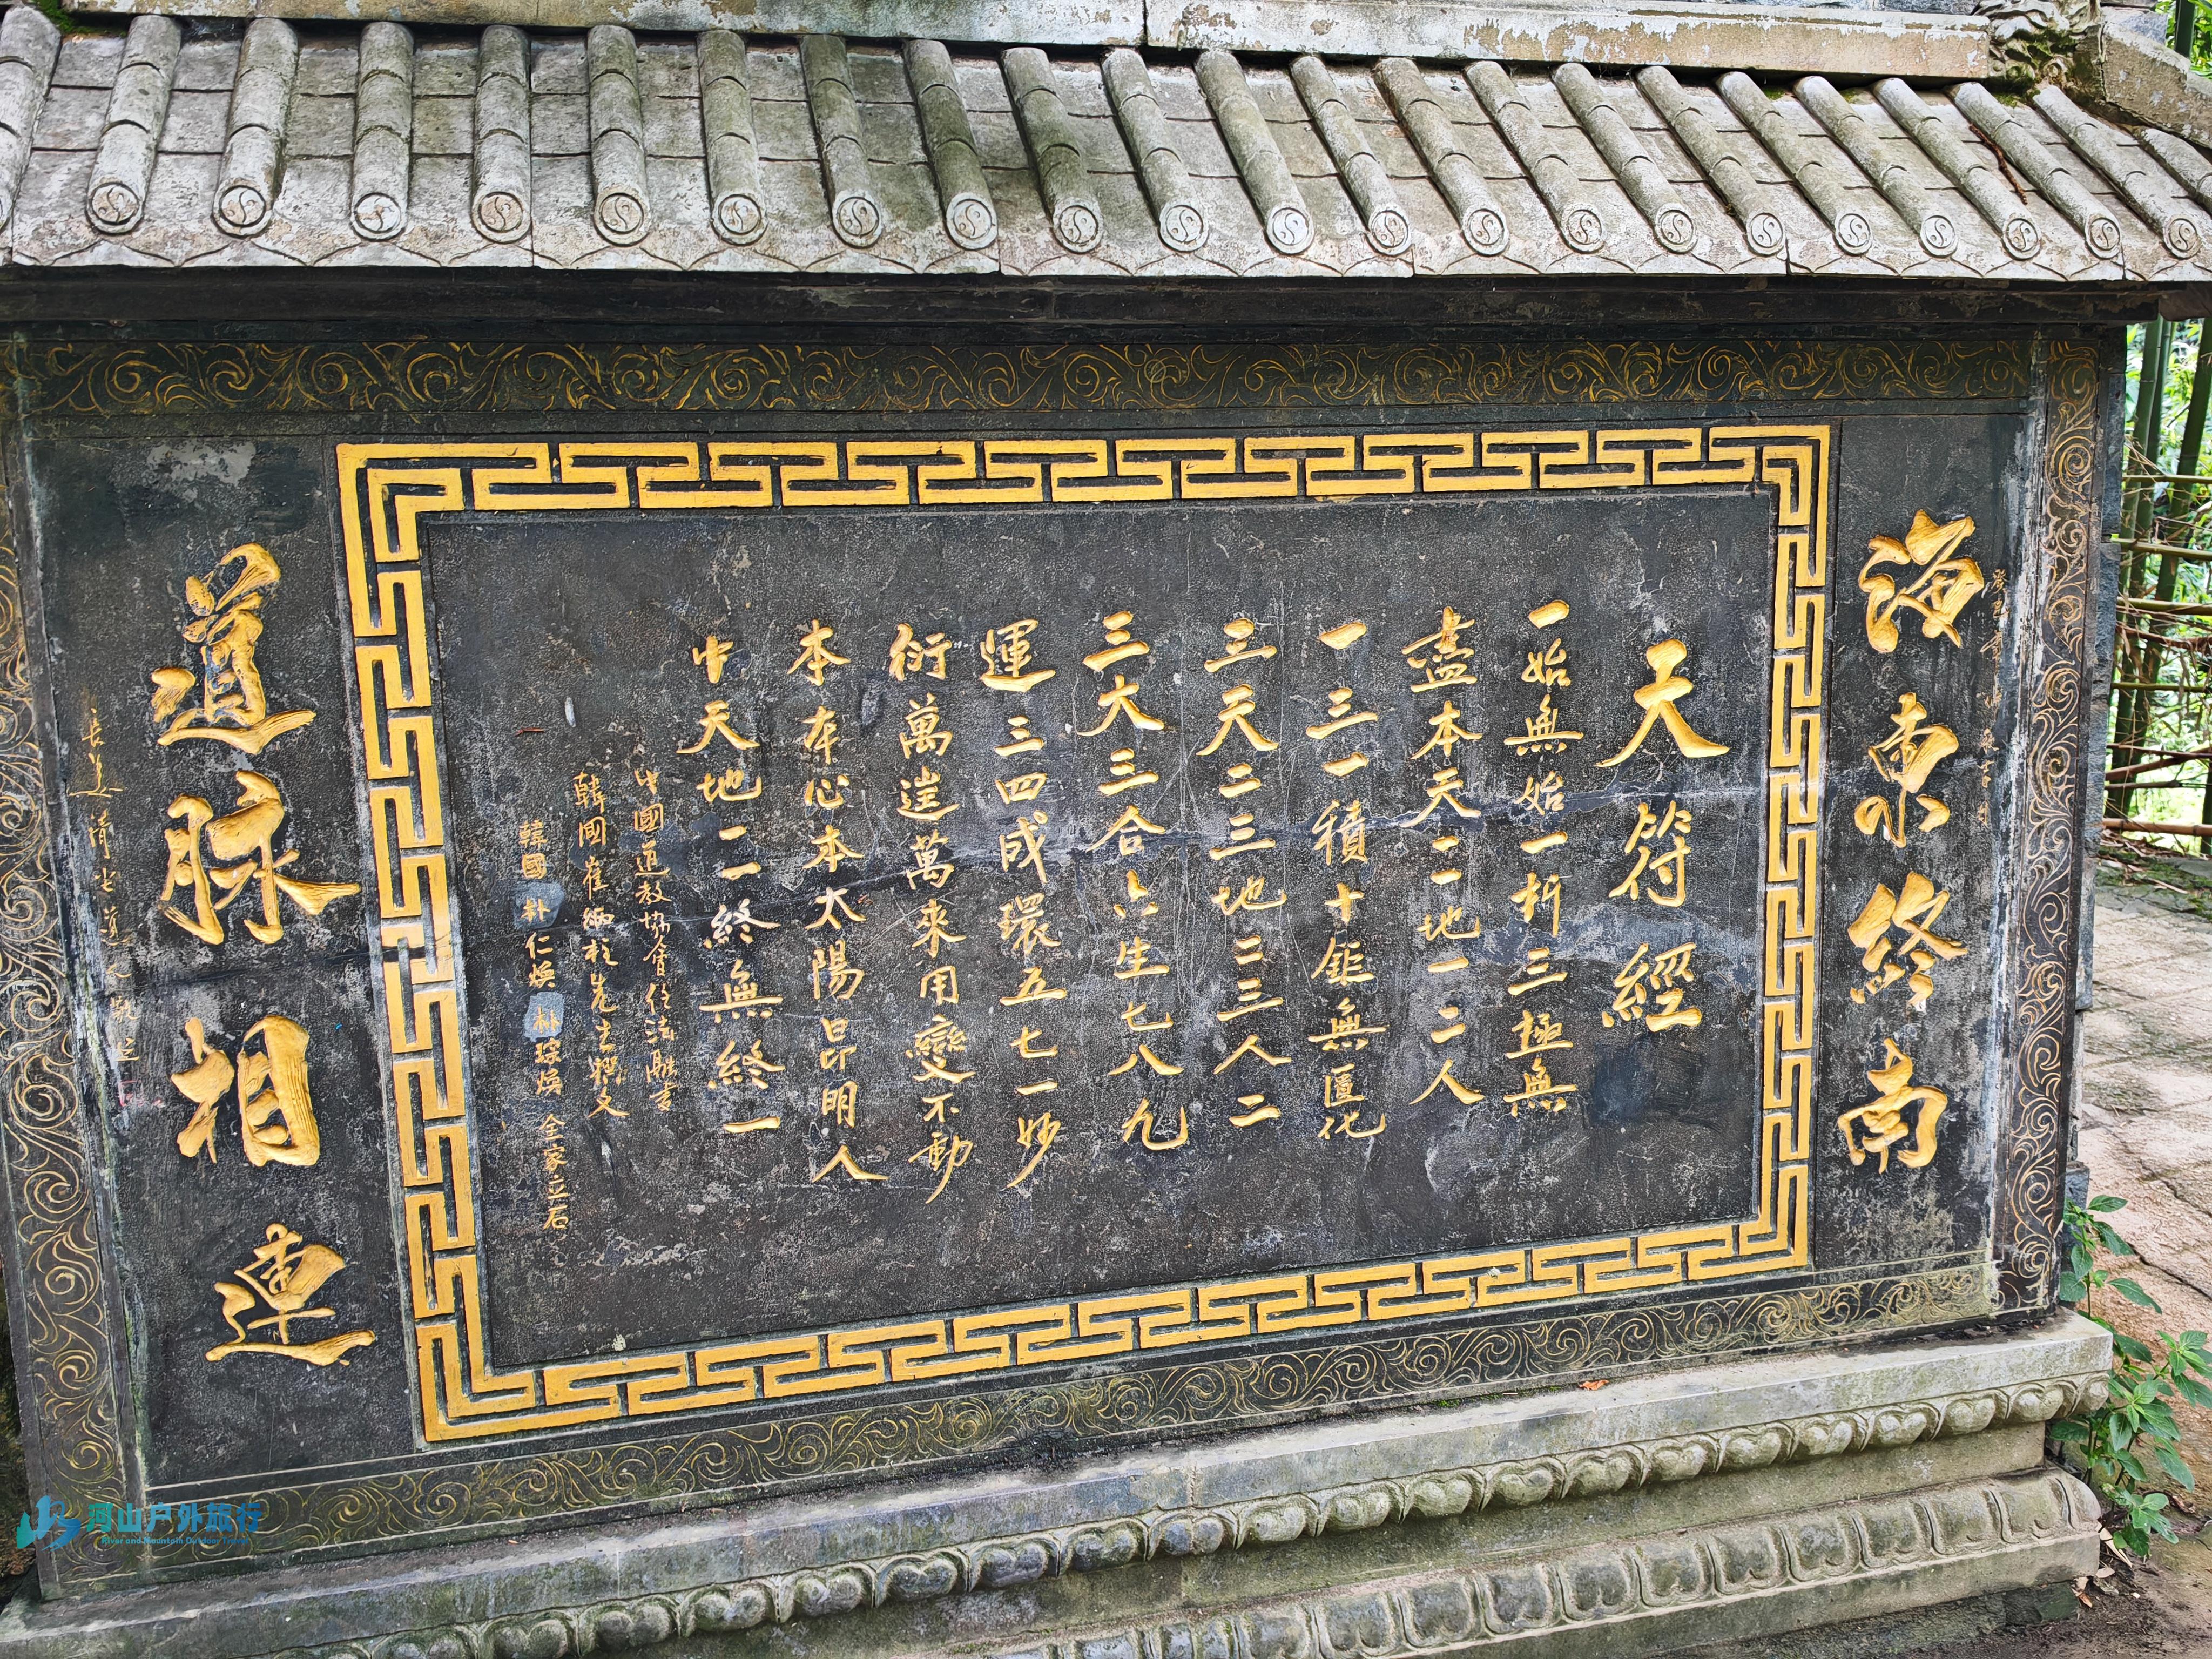 海東終南
天符經
一始無始一析三極無
盡本天一一地一二人
一三一積十鉅無匱化
三天二三地二三人二
三大三合六生七八九
運三四成環五七一妙
衍萬萬來用變不動
本本心本太陽昂明人
中天地一一終無終一
中國道教協會任法融書
韓國崔先生文
韓國 朴仁煥 朴琮煥 全家立石
道脉相連
河山户外旅行
River and Mountain Outdoor Travel